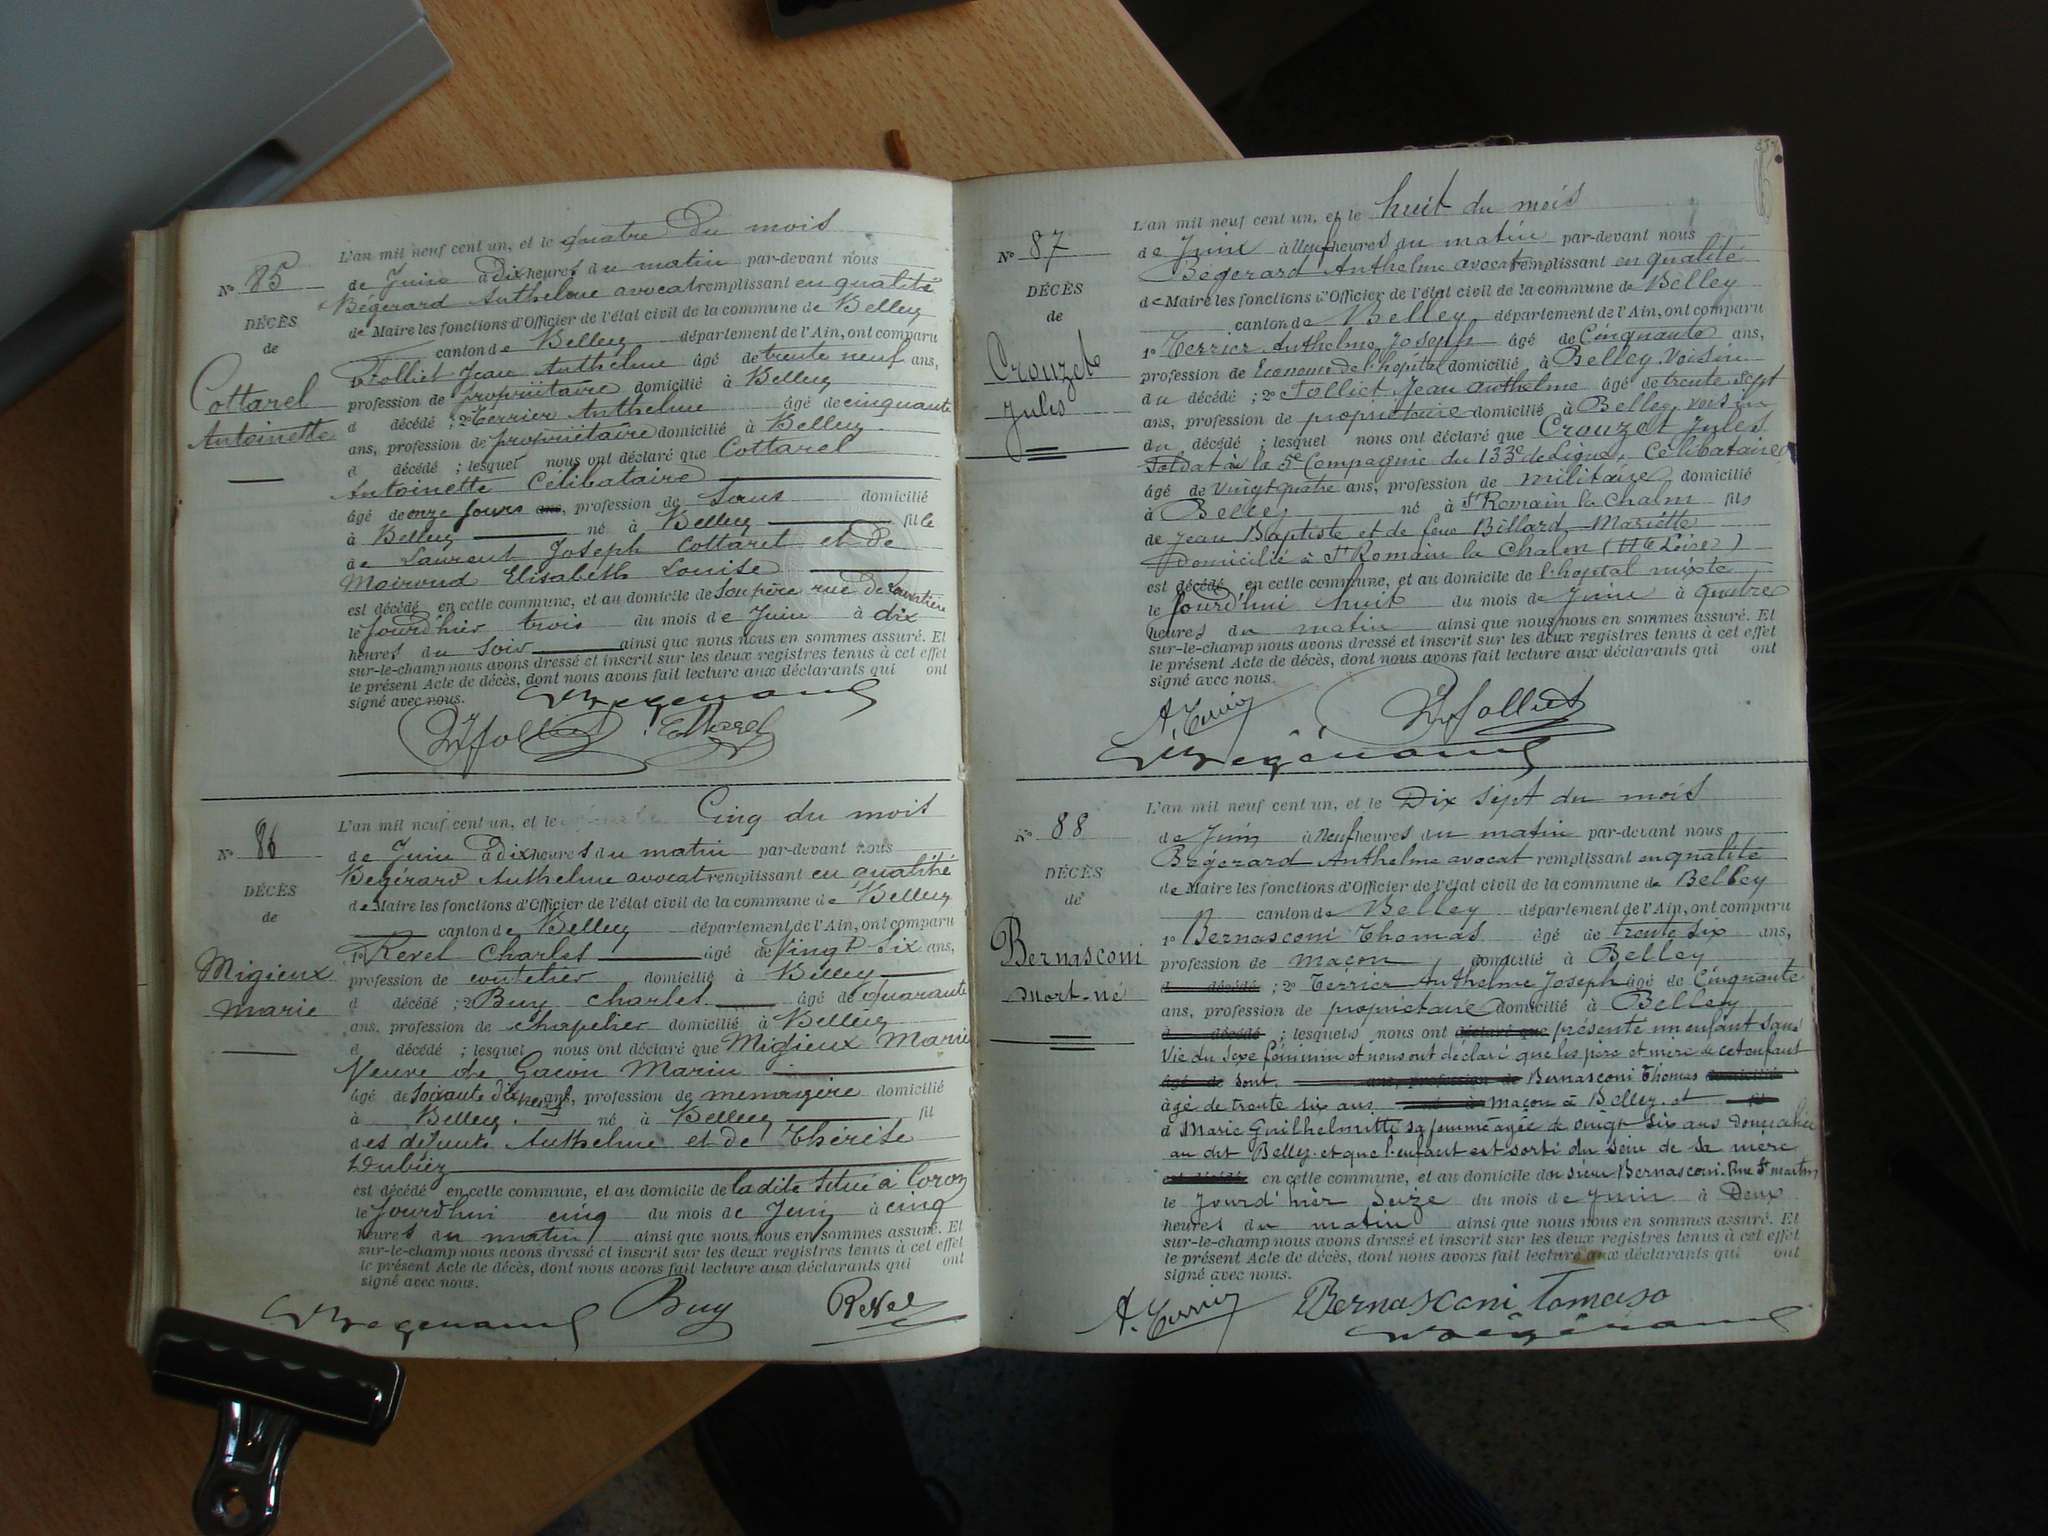 N° 85
DÉCÈS
de
Cottarel
Antoinette
L'an mil neuf cent un, et le quatre du mois
de Juin à Dix heures du matin par-devant nous
Bégerard Anthelme avocat remplissant en qualité
de Maire les fonctions d'Officier de l'état civil de la commune de Belley
canton de Belley département de l'Ain, ont comparu
1° Folliet Jean Anthelme âgé de trente neuf ans,
profession de propriétaire domicilié à Belley
d décédé ; 2° Terrier Anthelme âgé de cinquante
ans, profession de propriétaire domicilié à Belley
d décédé ; lesquel nous ont déclaré que Cottarel
Antoinette Célibataire
âgé de onze jours ans, profession de Sans domicilié
à Belley né à Belley fille
de Laurent Joseph Cottaret et de
Moiroud Elisabeth Louise
est décédé en cette commune, et au domicile de son père rue de
le Jourd'hier trois du mois de Juin à dix
heures du soir ainsi que nous nous en sommes assuré. Et
sur-le-champ nous avons dressé et inscrit sur les deux registres tenus à cet effet
le présent Acte de décès, dont nous avons fait lecture aux déclarants qui ont
signé avec nous.
N° 86
DÉCÈS
de
Migieux
Marie
L'an mil neuf cent un, et le Cinq du mois
de Juin à Dix heures du matin par-devant nous
Bégérard Anthelme avocat remplissant en qualité
de Maire les fonctions d'Officier de l'état civil de la commune de Belley
canton de Belley département de l'Ain, ont comparu
1° Revel Charles âgé de Vingt Six ans,
profession de coutelier domicilié à Belley
d décédé ; 2° Buy Charles âgé de quarante
ans, profession de chapelier domicilié à Belley
d décédé ; lesquel nous ont déclaré que Migieux Marie
Veuve de Gacon Marin
âgé de Soixante Dix neuf ans, profession de menagère domicilié
à Belley né à Belley fil
des défunts Anthelme et de Thérèse
Dubiez
est décédé en cette commune, et au domicile de ladite Situé à Coron
le Jourd'hui cinq du mois de Juin à cinq
heures du matin ainsi que nous nous en sommes assuré. Et
sur-le-champ nous avons dressé et inscrit sur les deux registres tenus à cet effet
le présent Acte de décès, dont nous avons fait lecture aux déclarants qui ont
signé avec nous.
Buy Revel
N° 87
DÉCÈS
de
Crouzet
Jules
L'an mil neuf cent un, et le huit du mois
de Juin à Neuf heures du matin par-devant nous
Bégerard Anthelme avocat remplissant en qualité
de Maire les fonctions d'Officier de l'état civil de la commune de Belley
canton de Belley département de l'Ain, ont comparu
1° Terrier Anthelme Joseph âgé de Cinquante ans,
profession de Econome de l'hôpital domicilié à Belley Voisin
du décédé ; 2° Folliet Jean Anthelme âgé de trente sept
ans, profession de propriétaire domicilié à Belley voisin
du décédé ; lesquel nous ont déclaré que Crouzet Jules
Soldat à la 5e Compagnie du 133e de Ligne, Célibataire
âgé de vingt quatre ans, profession de militaire domicilié
à Belley né à St Romain la Chalm fils
de Jean Baptiste et de feue Billard Mariette
Domicilié à St Romain la Chalm (Hte Loire)
est décédé en cette commune, et au domicile de l'hopital mixte
le Jourd'hui huit du mois de Juin à quatre
heures du matin ainsi que nous nous en sommes assuré. Et
sur-le-champ nous avons dressé et inscrit sur les deux registres tenus à cet effet
le présent Acte de décès, dont nous avons fait lecture aux déclarants qui ont
signé avec nous.
A. Terrier Folliet
N° 88
DÉCÈS
de
Bernasconi
Mort-né
L'an mil neuf cent un, et le Dix sept du mois
de Juin à Neuf heures du matin par-devant nous
Bégerard Anthelme avocat remplissant en qualité
de Maire les fonctions d'Officier de l'état civil de la commune de Belley
canton de Belley département de l'Ain, ont comparu
1° Bernasconi Thomas âgé de trente six ans,
profession de maçon domicilié à Belley
d décédé ; 2° Terrier Anthelme Joseph âgé de Cinquante
ans, profession de propriétaire domicilié à Belley
d décédé ; lesquels nous ont déclaré que présenté un enfant sans
Vie du Sexe féminin et nous ont déclaré que les père et mère de cet enfant
âgé de sont ans, profession de Bernasconi Thomas domicilié
âgé de trente six ans né à maçon à Belley et fil
d Marie Guilhelmitte sa femme agée de vingt six ans Domiciliée
au dit Belley et que l'enfant est sorti du sein de sa mère
est décédé en cette commune, et au domicile du sieur Bernasconi Rue St martin
le Jourd'hier Seize du mois de Juin à Deux
heures du matin ainsi que nous nous en sommes assuré. Et
sur-le-champ nous avons dressé et inscrit sur les deux registres tenus à cet effet
le présent Acte de décès, dont nous avons fait lecture aux déclarants qui ont
signé avec nous.
A. Terrier Bernasconi Tomaso